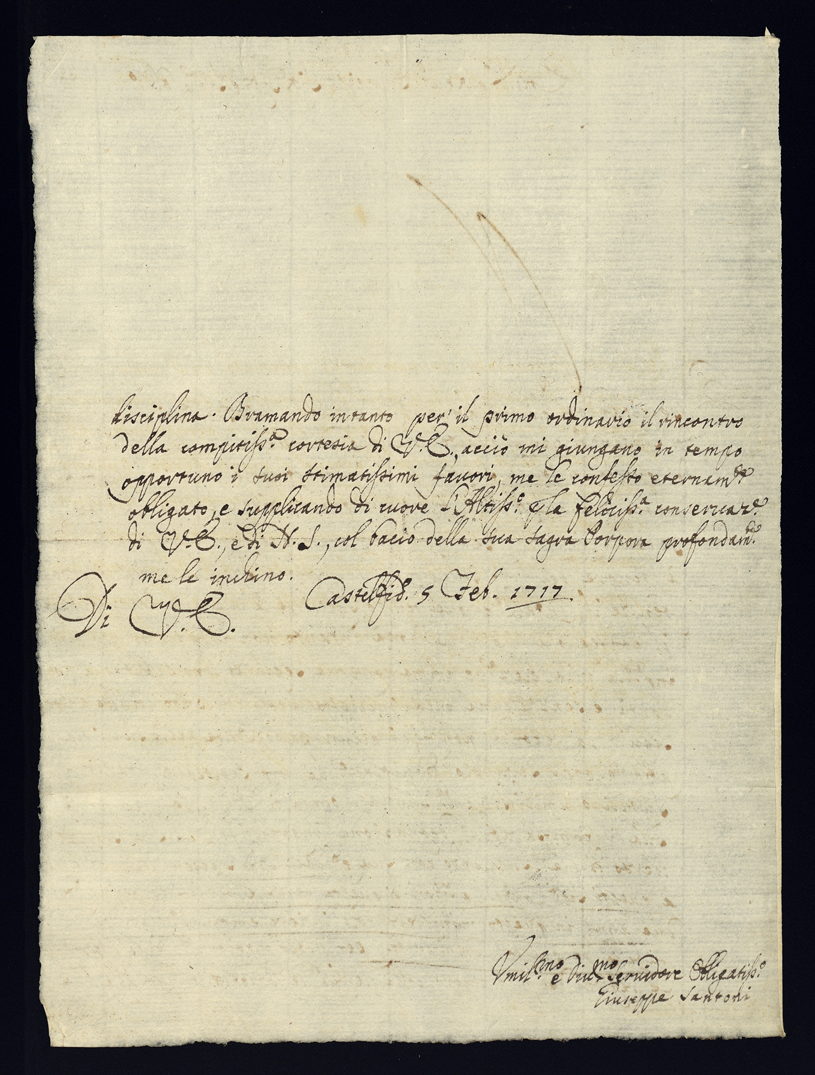 disciplina. Bramando intanto per il primo ordinario il rincontro
della compitiss.a cortesia di V.E., acciò mi giungano in tempo
opportuno i suoi stimatissimi favori, me le contesto eternam.te
obligato, e supplicando di cuore l'Altiss.o p la feliciss.a conservaz.e
di V.E., e di N.S., col bacio della sua sagra Porpora profondam.te
me le inchino.
Di V.E.
Castelfid.o 5 Feb. 1717.
Umil.mo e Div.mo Servidore Obligatiss.o
Giuseppe Santoni